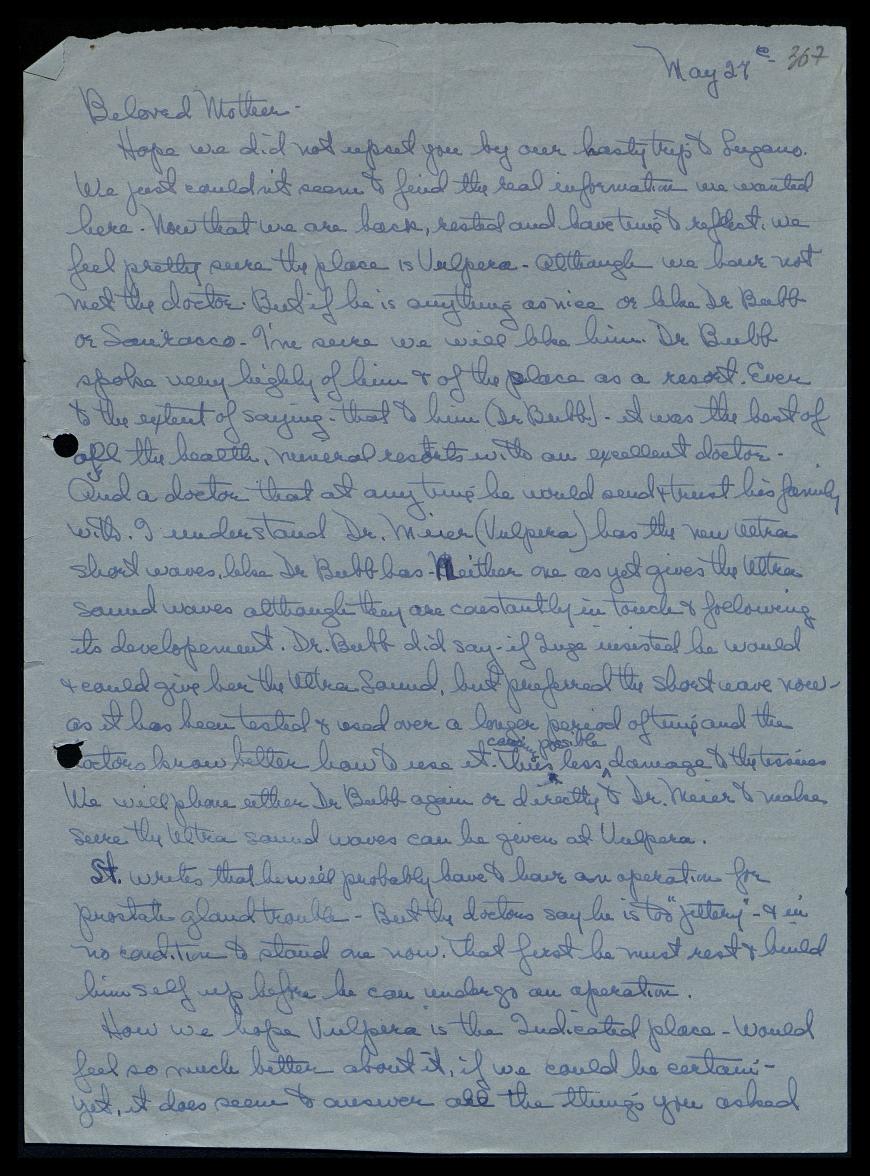 May 27th - 367
Beloved Mother -
Hope we did not upset you by our hasty trip to Lugano.
We just couldn't seem to find the real information we wanted
here. Now that we are back, rested and have time to reflect. we
feel pretty sure the place is Vulpera - although we have not
met the doctor. But if he is anything as nice or like Dr Bubb
or - I'm sure we will like him. Dr Bubb
spoke very highly of him & of the place as a resort. Even
to the extent of saying - that to him (Dr Bubb) - it was the best of
all the health, mineral resorts with an excellent doctor -
And a doctor that at any time he would send & trust his family
with. I understand Dr. Meier (Vulpera) has the new Ultra
short waves, like Dr Bubb has - Neither one as yet gives the Ultra
sound waves although they are constantly in touch & following
its developement. Dr. Bubb did say - if Inge insisted he would
& could give her the Ultra Sound, but preferred the short wave now -
as it has been tested & used over a longer period of time and the
doctors know better how to use it. Thus less damage to the tissues
causing possible
We will phone either Dr Bubb again or directly to Dr. Meier to make
sure the Ultra sound waves can be given at Vulpera.
St. writes that he will probably have to have an operation for
prostate gland trouble - But the doctors say he is too "jittery" - & in
no condition to stand one now. That first he must rest & build
himself up before he can undergo an operation.
How we hope Vulpera is the Indicated place - Would
feel so much better about it, if we could be certain -
yet, it does seem to answer all the things you asked